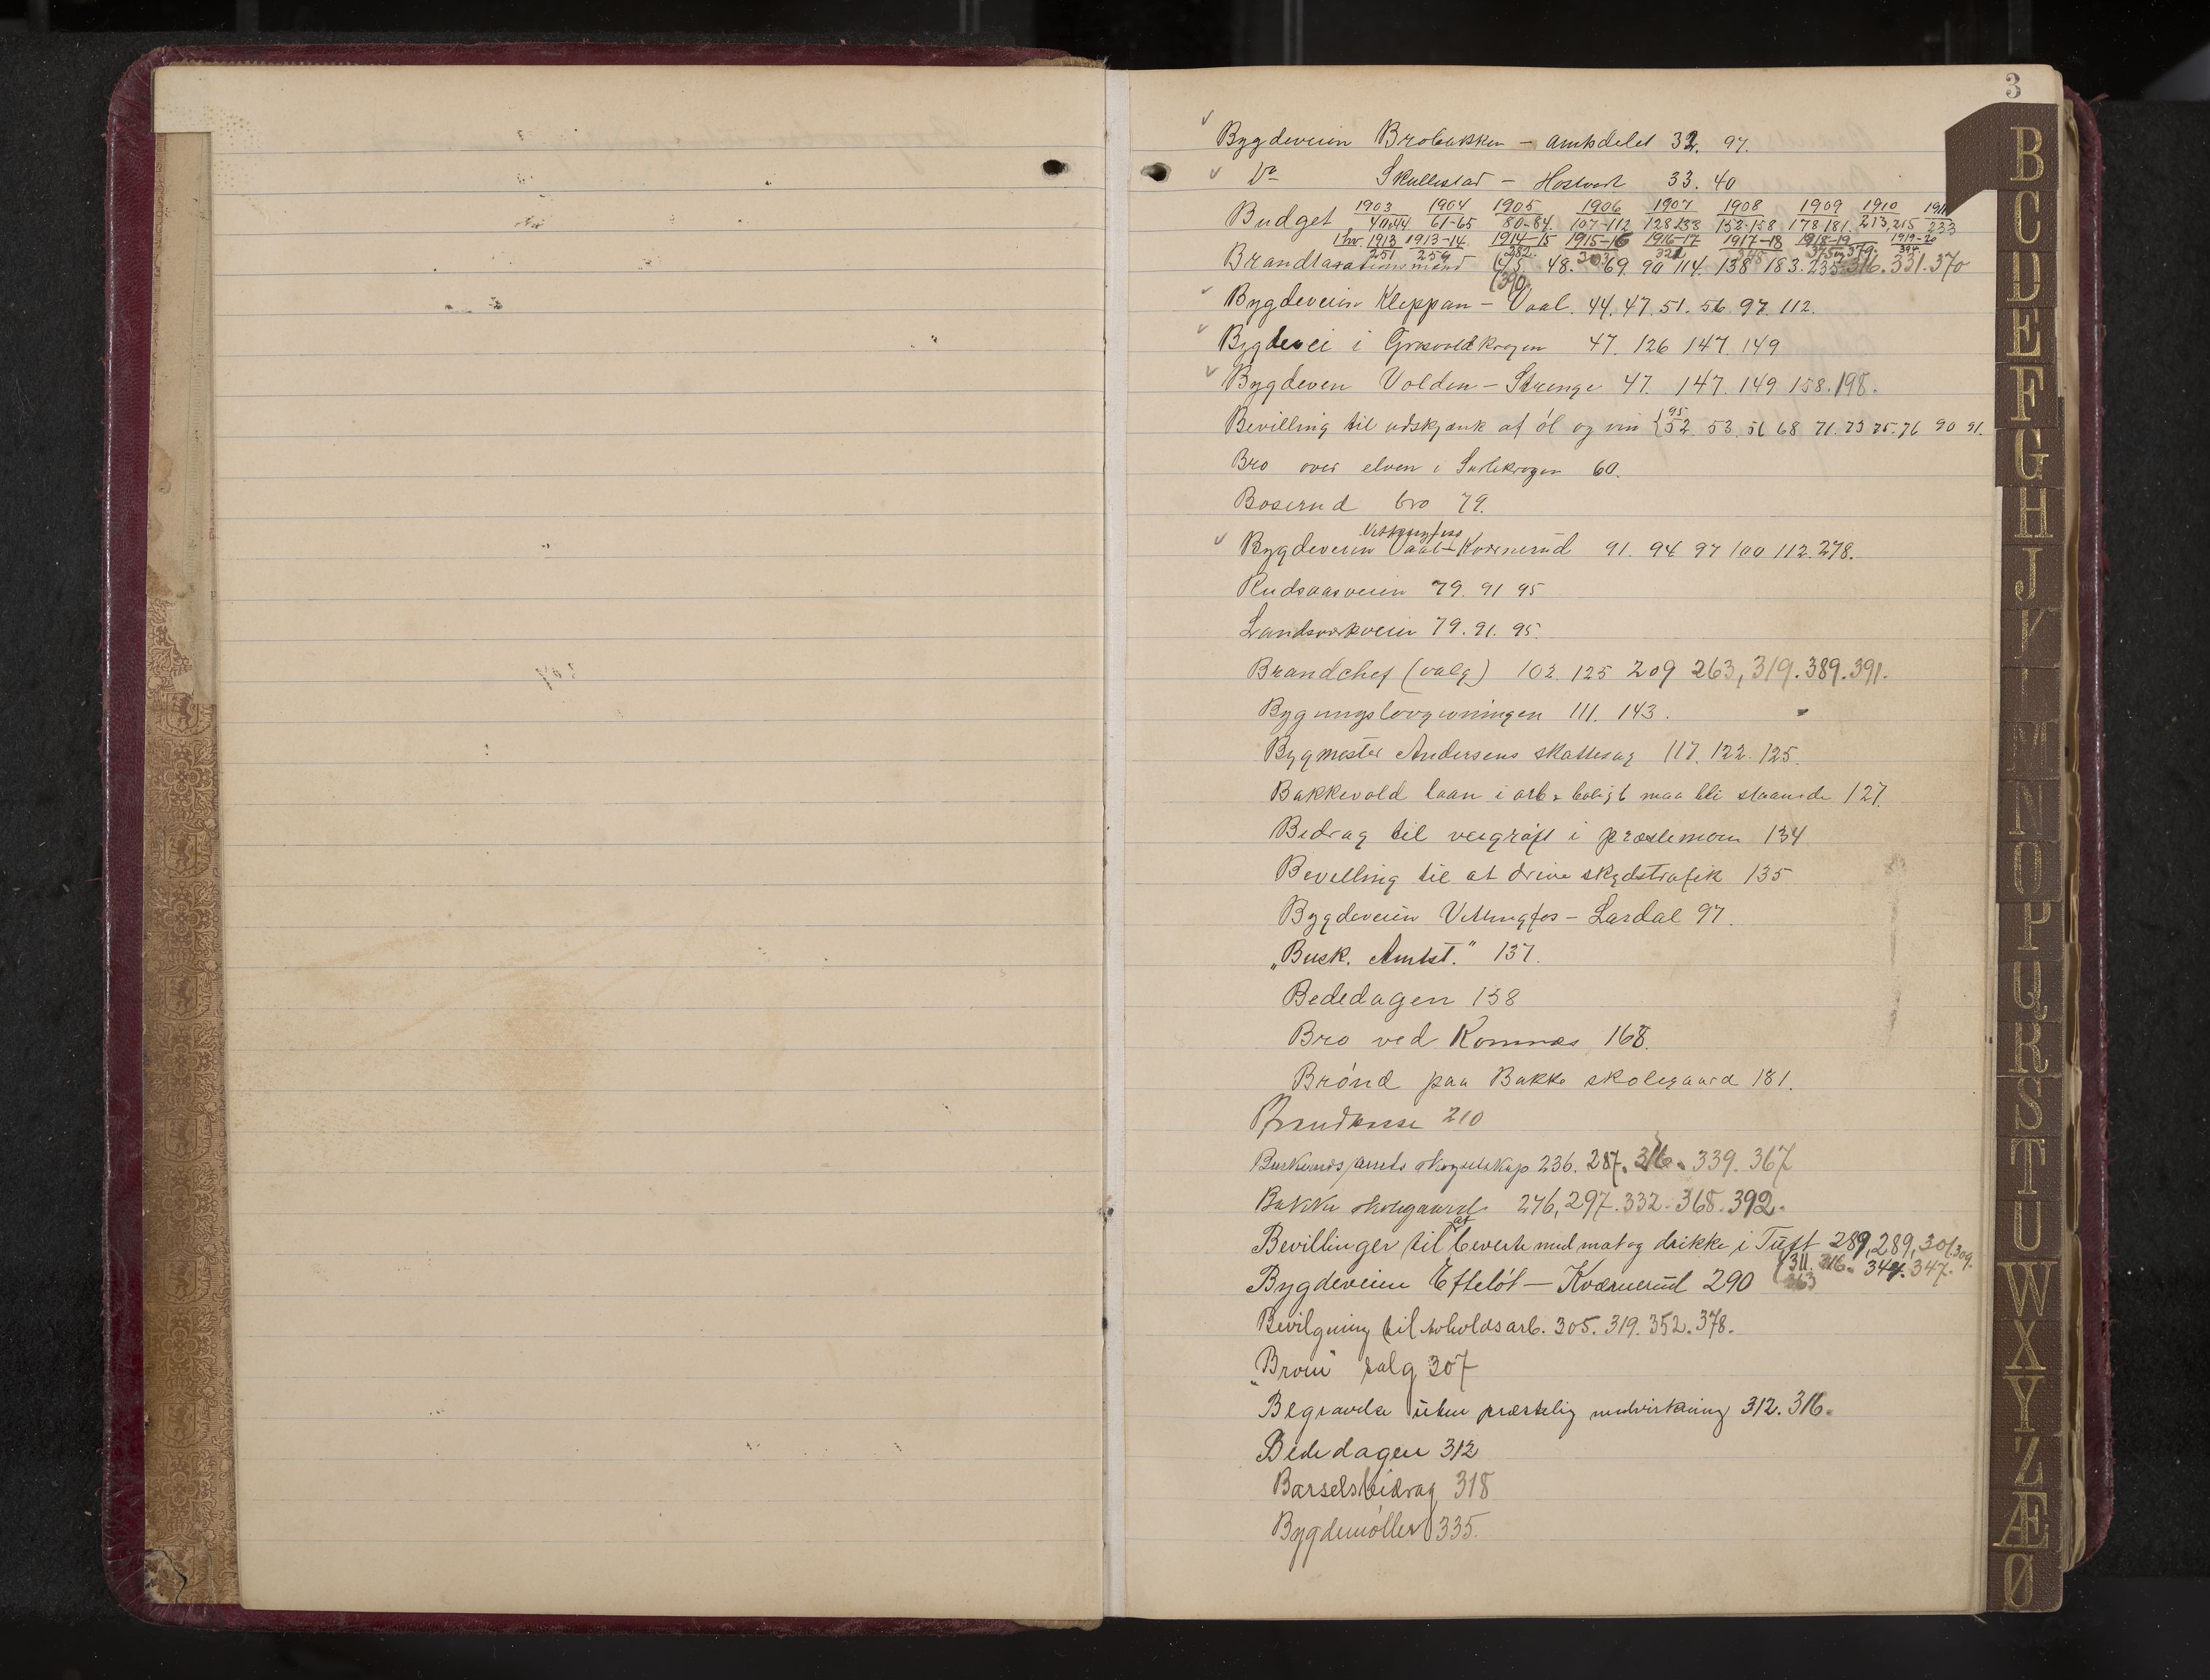 3
Bygdeveien Brobakken - amtsdelet 32. 97.
Do Skullestad - Hostvedt 33. 40
1903 1904 1905 1906 1907 1908 1909 1910 1911
Budget 40,44 61-65 80-84. 107-112 128 133 152-158 178 181. 213,215 233
1913 1913-14 1914-15 1915-16 1916-17 1917-18 1918-19 1919-20
251 259 282. 303 321 348 379. 394
Brandtaxationsmænd 45. 48. 69. 90 114. 138 183. 235. 316. 331. 370
(390.
Bygdeveien Kleppan - Vaal. 44. 47. 51. 56. 97. 112.
Bygdevei i 47. 126 147. 149
Bygdeveen Volden - Strenge 47. 147. 149 158. 198.
95
Bevilling til udskjænk af øl og vin { 52. 53. 56 68 71. 73 75. 76 90 91.
Bro over elven i 60.
Boserud bro 79.
Bygdeveien Vaal - Kværnerud 91. 94 97 100 112. 278.
Rudsaasveien 79. 91 95
Landsverkveien 79. 91. 95.
Brandchef (valg) 102. 125 209 263, 319. 389. 391.
Bygningslovgivningen 111. 143.
Bygmester Andersens skattesag 117. 122. 125.
Bakkevold laan i arb. boligb maa bli staaende 127.
Bedrag til veigrøft i præstemoen 134
Bevelling til at drive skydstrafik 135
Bygdeveien Vittingfos - Lardal 97.
"Busk. Amtst." 137.
Bededagen 158
Bro ved Komnes 168.
Brønd paa Bakke skolegaard 181.
Brandkasse 210
Buskeruds amts skogselskap 236. 287. 316. 339. 367
Bakke skolegaard 276, 297. 332. 368. 392.
Bevillinger til at beverte med mat og drikke i Tuft 289, 289, 301. 309.
(311. 316. 344. 347.
363
Bygdeveien Efteløt - Kværnerud 290
Bevilgning til avholdsarb. 305. 319. 352. 378.
"Broin" salg 307
Begravelse uten præstelig medvirkning 312. 316.
Bededagen 312
Barselsbidrag 318
Bygdemøller 335.
B
C
D
E
F
G
H
J
K
L
M
N
O
P
Q
R
S
T
U
W
X
Y
Z
Æ
Ø